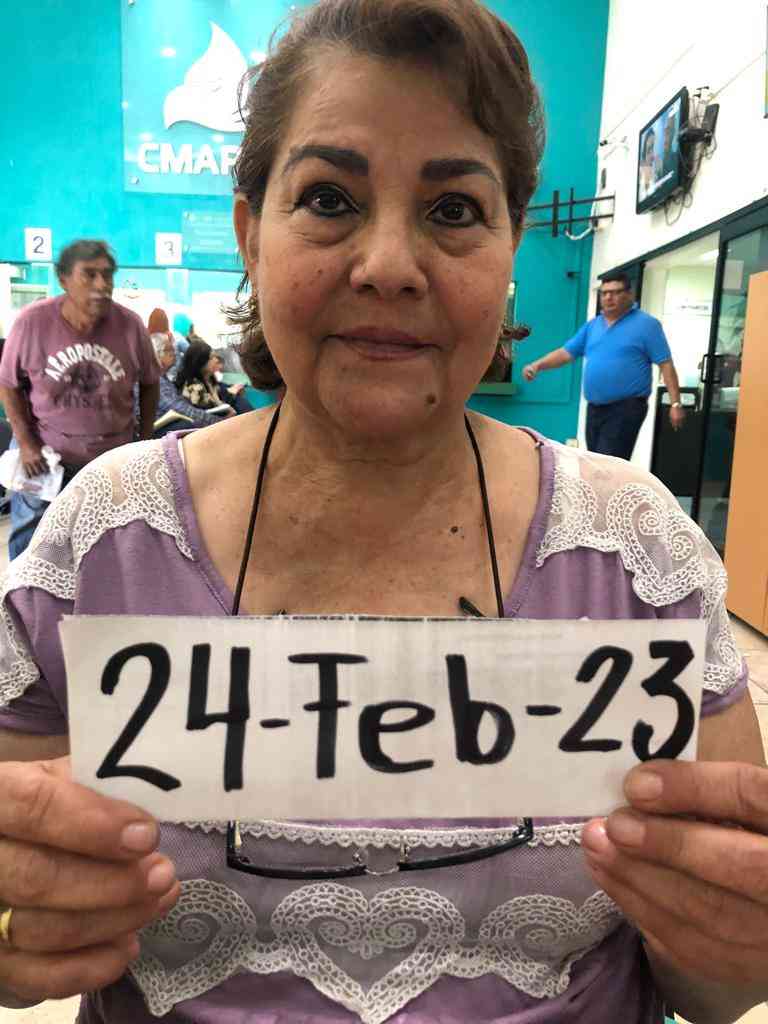 CMAP
2
3
AEROPOSTALE
24-Feb-23